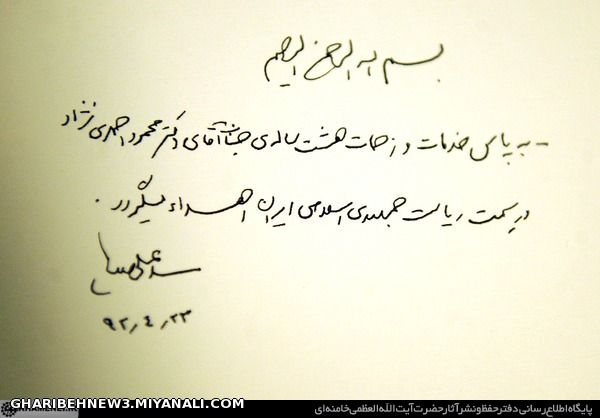 بسم الله الرحمن الرحیم
- به پاس خدمات و زحمات هشت ساله‌ی جناب آقای دکتر محمود احمدی نژاد
در سمت ریاست جمهوری اسلامی ایران اهداء میگردد.
سید علی
۹۲٫۴٫۲۳
GHARIBEHNEW3.MIYANALI.COM
پایگاه اطلاع رسانی دفتر حفظ و نشر آثار حضرت آیت الله العظمی خامنه‌ای